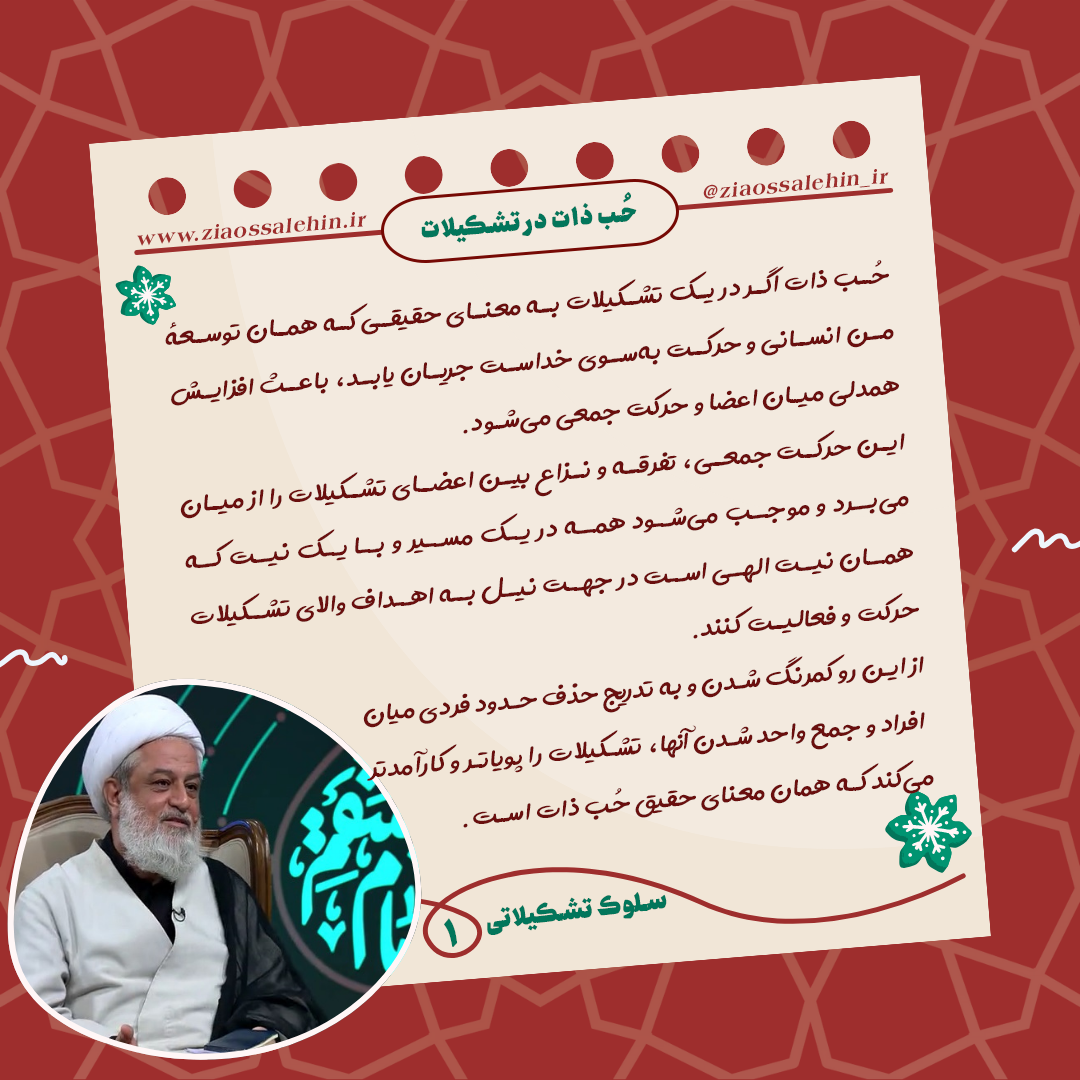 @ziaossalehin_ir
www.ziaossalehin.ir
حُب ذات در تشکیلات
حُب ذات اگر در یک تشکیلات به معنای حقیقی که همان توسعهٔ
من انسانی و حرکت به‌سوی خداست جریان یابد، باعث افزایش
همدلی میان اعضا و حرکت جمعی می‌شود.
این حرکت جمعی، تفرقه و نزاع بین اعضای تشکیلات را از میان
می‌برد و موجب می‌شود همه در یک مسیر و با یک نیت که
همان نیت الهی است در جهت نیل به اهداف والای تشکیلات
حرکت و فعالیت کنند.
از این رو کمرنگ شدن و به تدریج حذف حدود فردی میان
افراد و جمع واحد شدن آنها، تشکیلات را پویاتر و کارآمدتر
می‌کند که همان معنای حقیقی حُب ذات است.
سلوک تشکیلاتی
۱